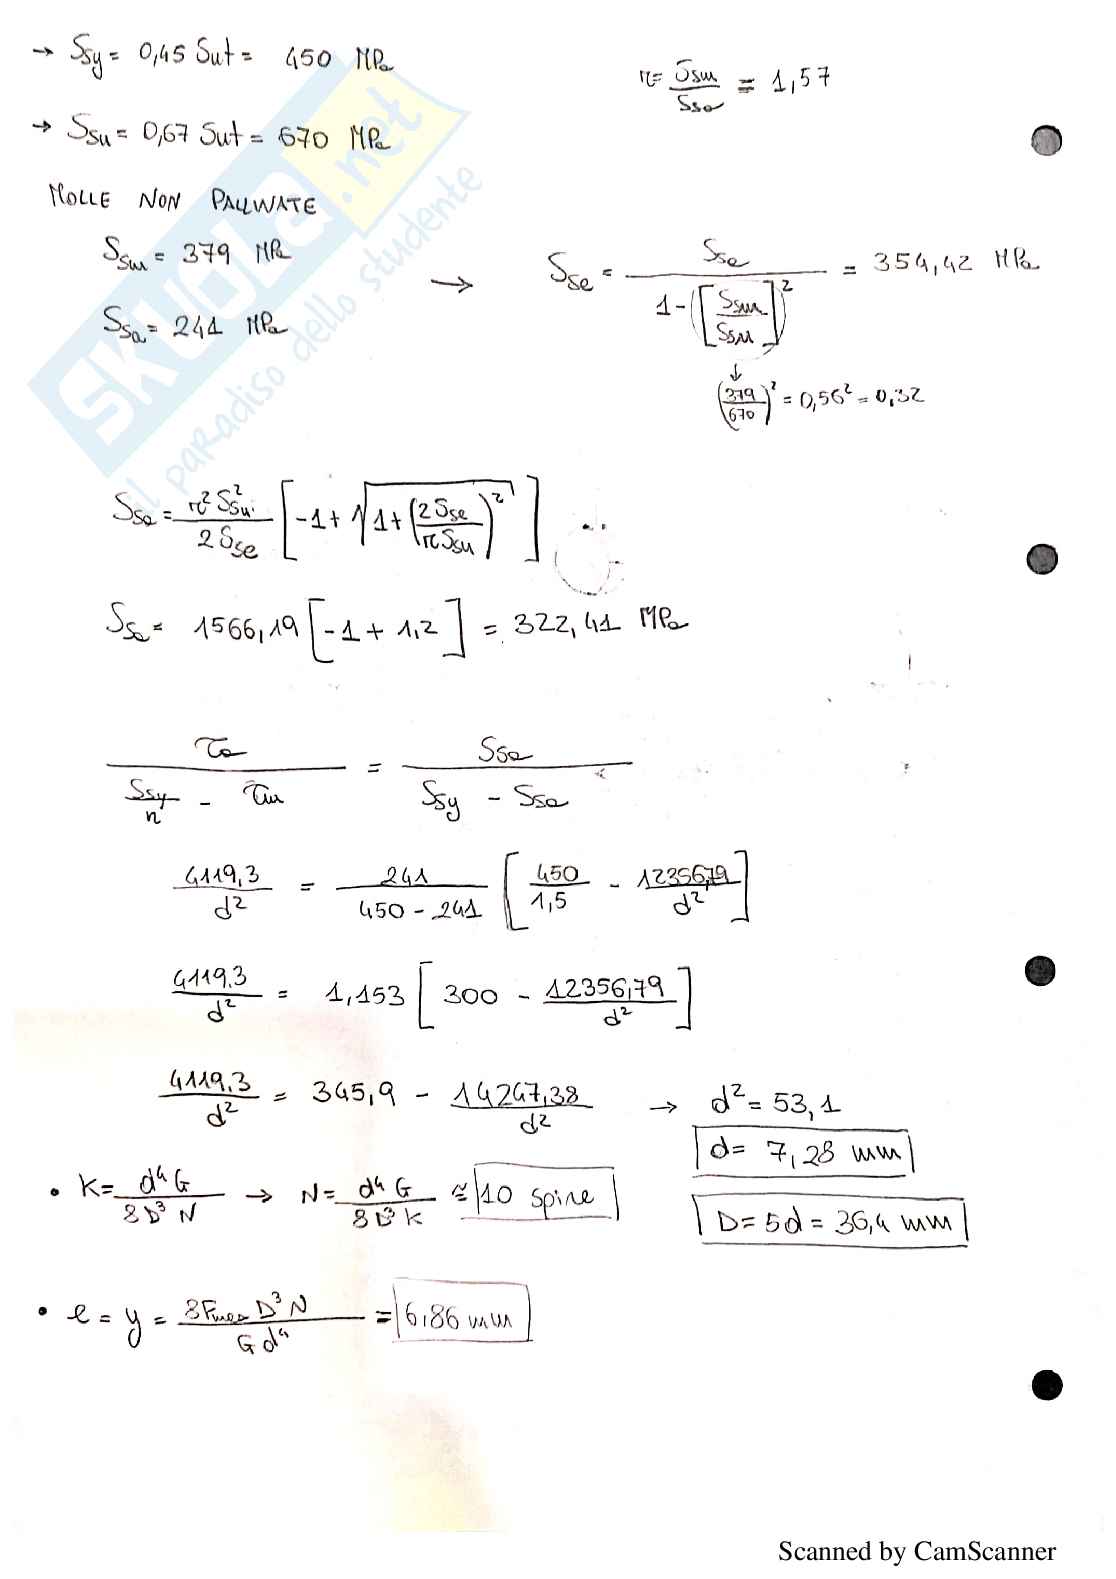 → Ssy = 0,45 Sut = 450 MPa
r = Ssm/Ssa = 1,57
→ Ssu = 0,67 Sut = 670 MPa
MOLLE NON PALLINATE
Ssm = 379 MPa
→ Sse = Ssa / (1 - [Ssm/Ssu]²) = 354,42 MPa
Ssa = 241 MPa
↓
(379/670)² = 0,56² = 0,32
Ssa = r² Ssu² / 2 Sse [-1 + √(1 + (2 Sse / r Ssu)²)]
Ssa = 1566,19 [-1 + 1,2] = 322,41 MPa
τa / (Ssy/n - τm) = Ssa / (Ssy - Ssa)
4119,3/d² = 241/(450 - 241) [450/1,5 - 12356,79/d²]
4119,3/d² = 1,153 [300 - 12356,79/d²]
4119,3/d² = 345,9 - 14247,38/d² → d² = 53,1
d = 7,28 mm
• K = d⁴ G / 8 D³ N → N = d⁴ G / 8 D³ K ≅ 10 spire
D = 5d = 36,4 mm
• e = y = 8 Fmax D³ N / G d⁴ = 6,86 mm
SKUOLA.net
il paradiso dello studente
Scanned by CamScanner